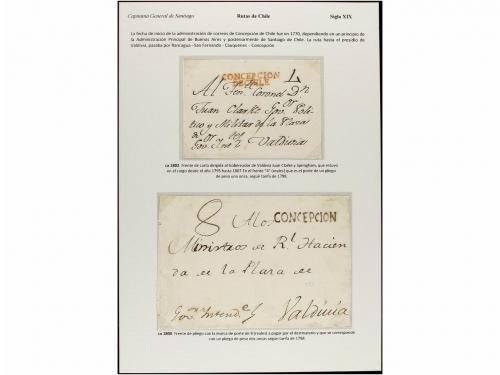 Capitanía General de Santiago Rutas de Chile Siglo XIX
La fecha de inicio de la administración de correos de Concepción de Chile fue en 1770, dependiendo en un principio de
la Administración Principal de Buenos Aires y posteriormente de Santiago de Chile. La ruta hasta el presidio de
Valdivia, pasaba por Rancagua - San Fernando - Cauquenes - Concepción
CONCEPCION
DE CHILE
Al Señor Coronel Dn
Juan Clarke Govor Polí
tico y Militar de la Plaza
de
Valdivia
ca 1802. Frente de carta dirigida al Gobernador de Valdivia Juan Clarke y Springham, que estuvo
en el cargo desde el año 1795 hasta 1807. En el frente "4" (reales) que es el porte de un pliego
de peso una onza, según tarifa de 1798.
8 A los CONCEPCION
Ministros de Rl Hacien
da de la Plaza de
Valdivia
ca 1808. Frente de pliego con la marca de porte de 8 (reales) a pagar por el destinatario y que se corresponde
con un pliego de peso dos onzas según tarifa de 1798